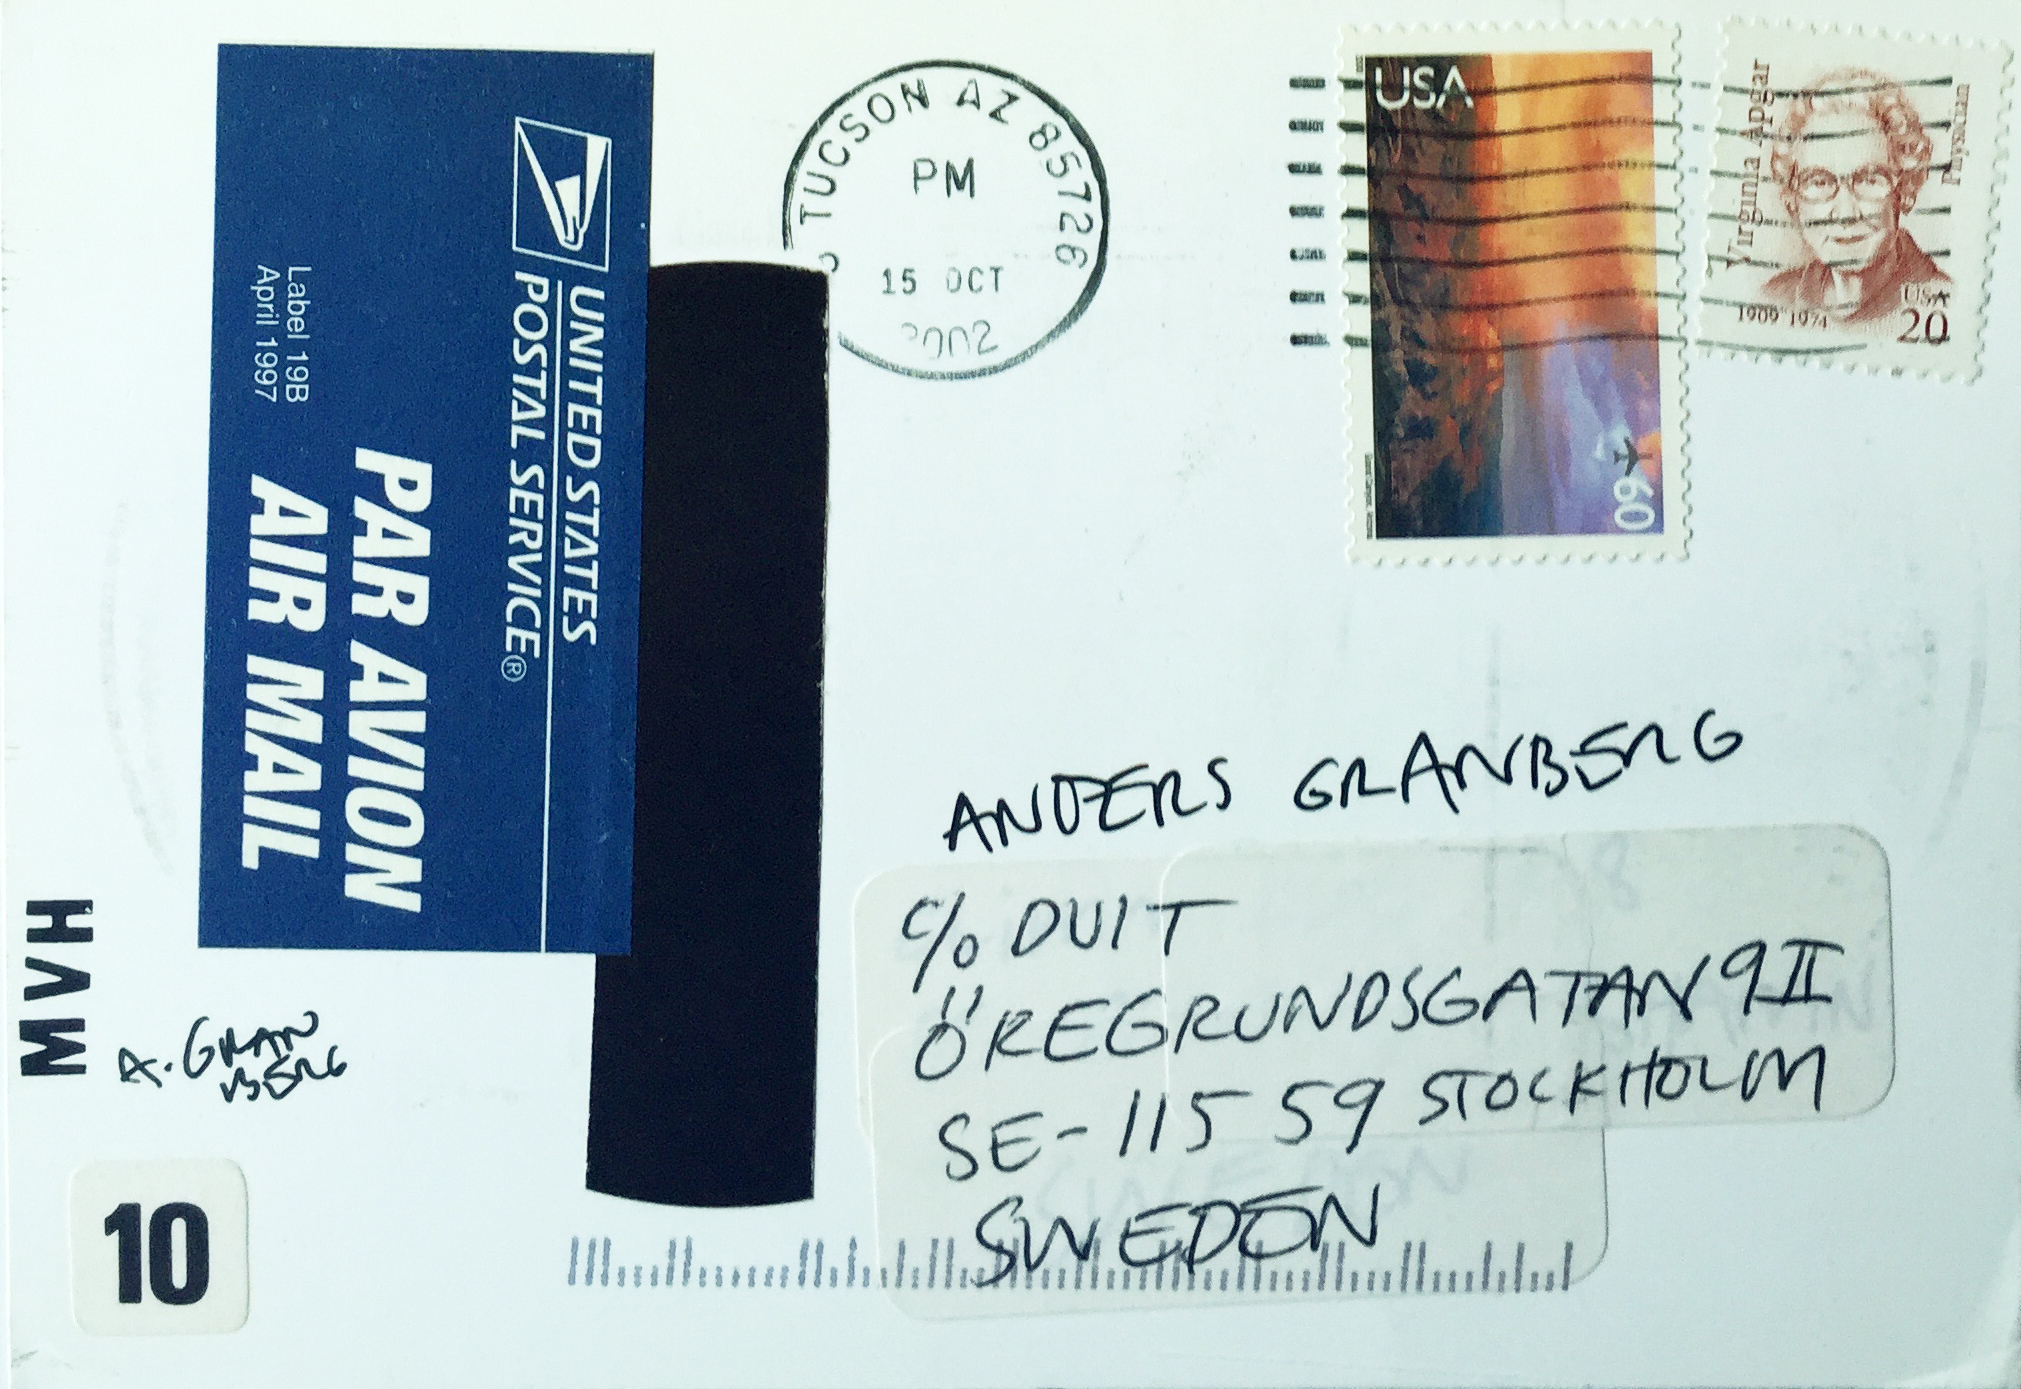 UNITED STATES
POSTAL SERVICE®
Label 19B
April 1997
PAR AVION
AIR MAIL
TUCSON AZ 85726
PM
15 OCT
2002
USA
60
Virginia Apgar
Physician
1909 1974
USA
20
ANDERS GRANBERG
C/O DUIT
ÖREGRUNDSGATAN 9 II
SE-115 59 STOCKHOLM
SWEDEN
MVH
A. GRAN
BERG
10